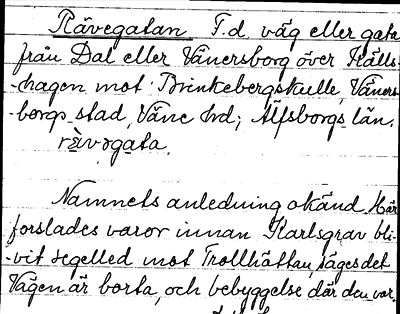 Rävegatan F.d. väg eller gata
från Dal eller Vänersborg över Källs-
-hagen mot Brinkebergskulle, Väners-
-borgs stad, Väne hrd; Älfsborgs län.
rä̀vəgata.
Namnets anledning okänd. Här
forslades varor innan Karlsgrav bli-
-vit segelled mot Trollhättan, säges det
Vägen är borta, och bebyggelse där den var.